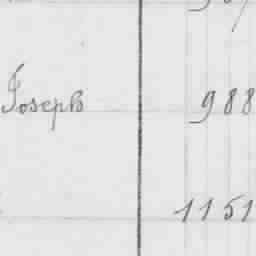 Joseph 988
1151